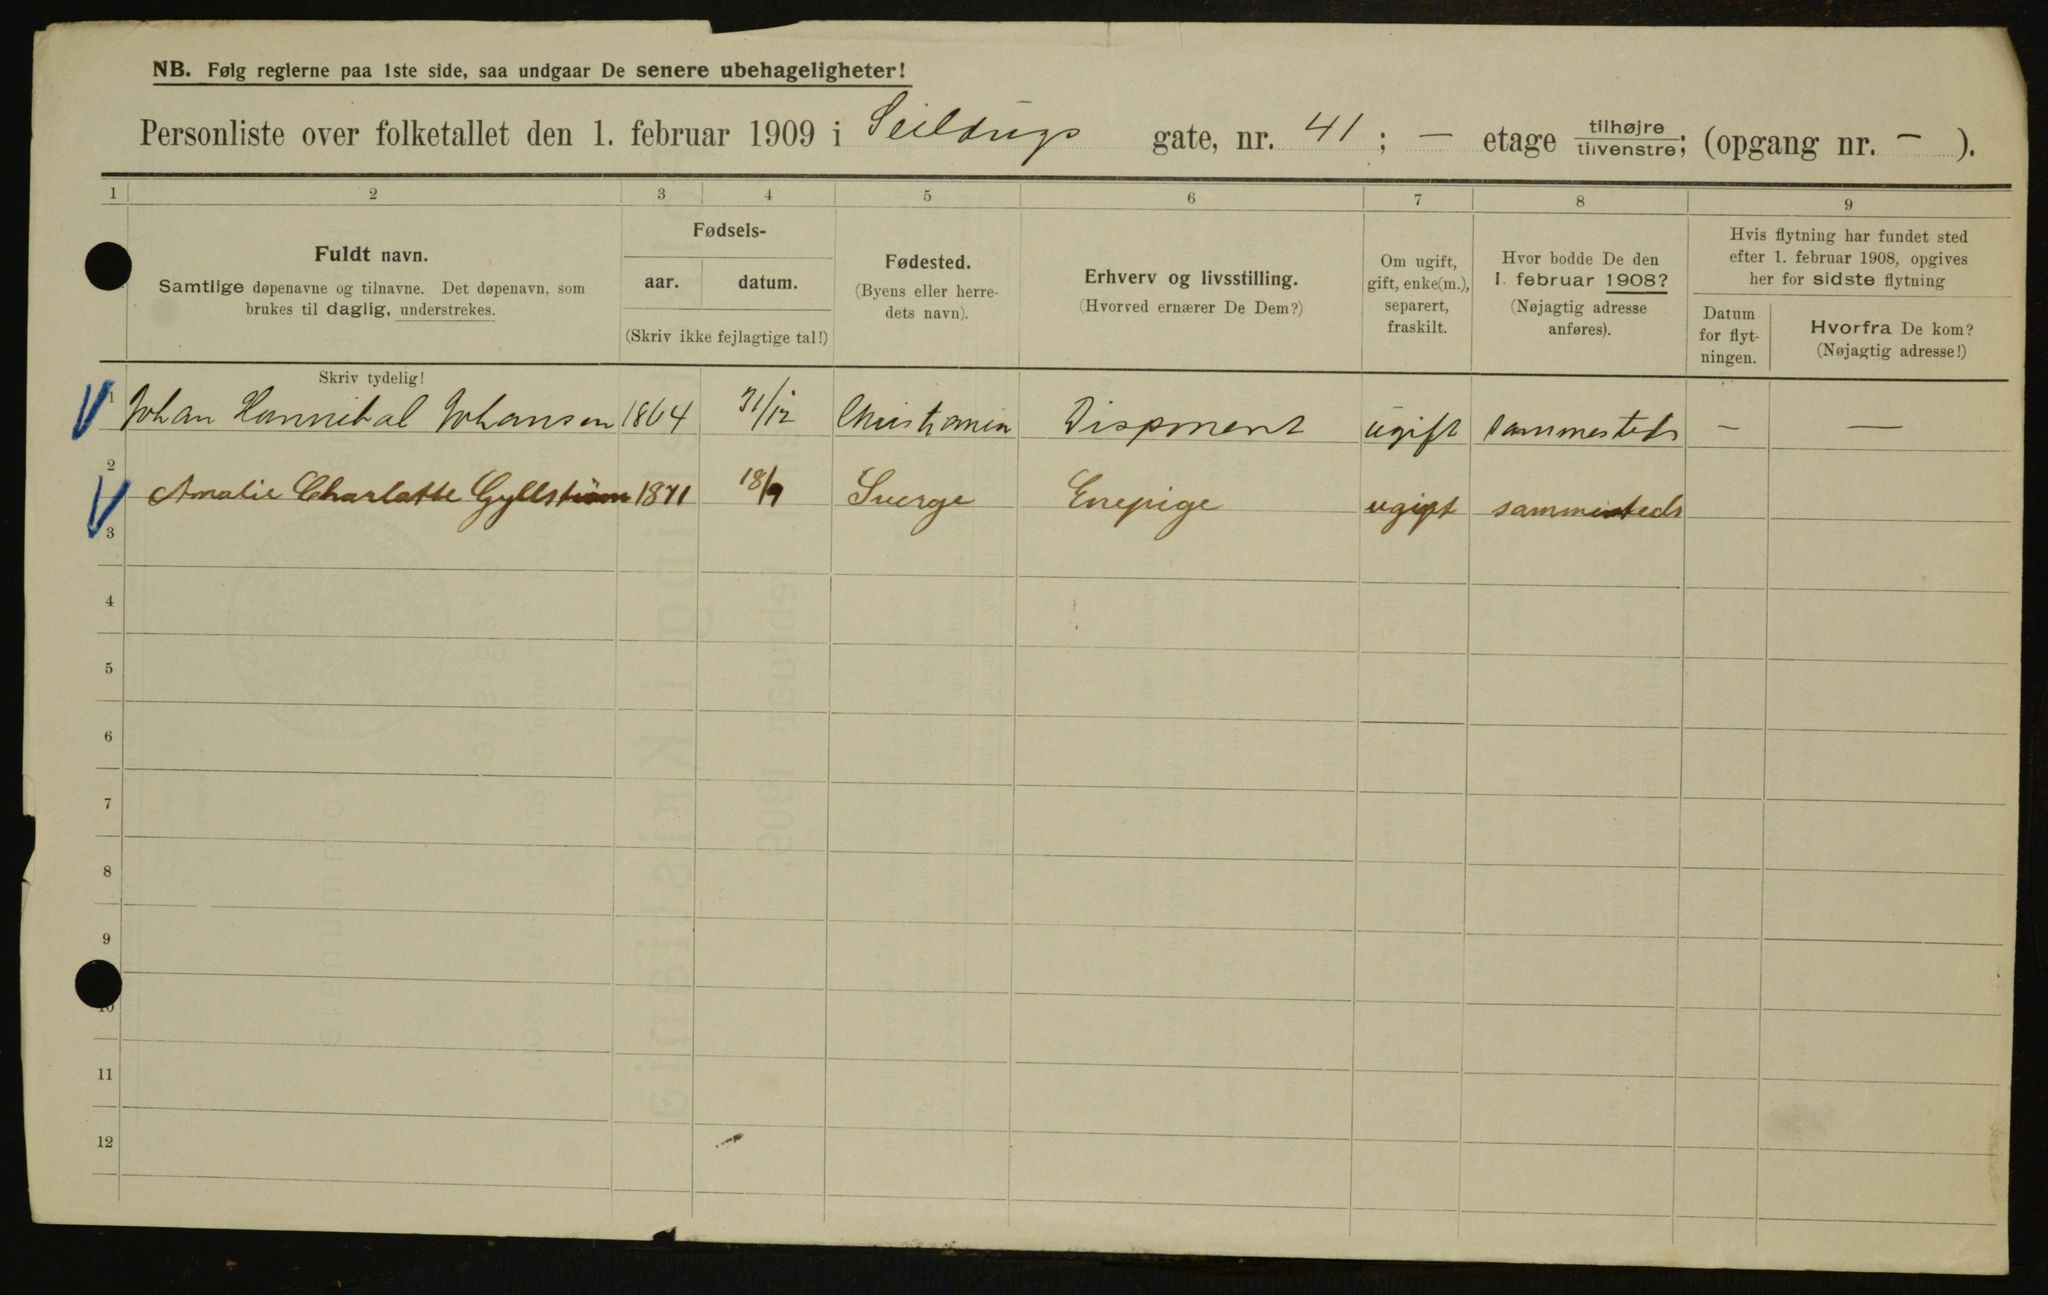 NB. Følg reglerne paa 1ste side, saa undgaar De senere ubehageligheter!
Personliste over folketallet den 1. februar 1909 i Seildugs gate, nr. 41; — etage tilhøjre tilvenstre; (opgang nr. — ).
1 2 3 4 5 6 7 8 9
Fuldt navn.
Samtlige døpenavne og tilnavne. Det døpenavn, som
brukes til daglig, understrekes.
Skriv tydelig!
Fødsels-
aar. datum.
(Skriv ikke fejlagtige tal!)
Fødested.
(Byens eller herre-
dets navn).
Erhverv og livsstilling.
(Hvorved ernærer De Dem?)
Om ugift,
gift, enke(m.),
separert,
fraskilt.
Hvor bodde De den
1. februar 1908?
(Nøjagtig adresse
anføres).
Hvis flytning har fundet sted
efter 1. februar 1908, opgives
her for sidste flytning
Datum
for flyt-
ningen.
Hvorfra De kom?
(Nøjagtig adresse!)
1 Johan Hannibal Johansen 1864 31/12 Christiania Disponent ugift sammesteds — —
2 Amalie Charlotte Gyllström 1871 18/9 Sverge Enepige ugift sammesteds
3
4
5
6
7
8
9
10
11
12